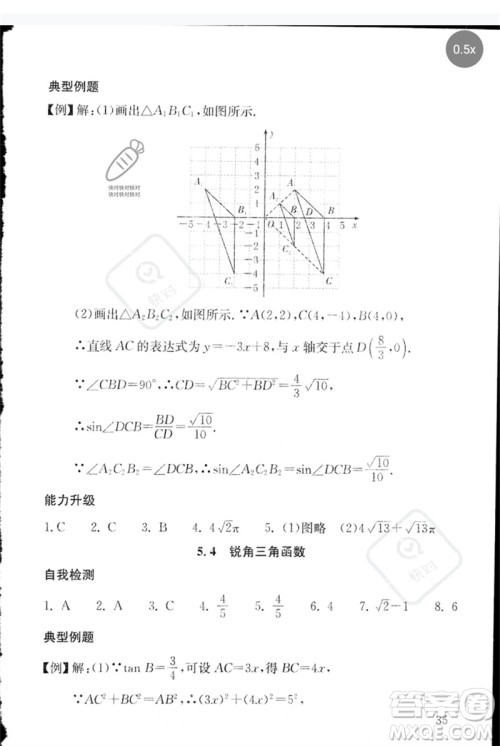 0.5x
典型例题
【例】解:(1)画出△A₁B₁C₁,如图所示.
快对快对快对
快对快对快对
y
5
4
3
2
1
A₁
A
A₂
B₁
B₂
B
-5-4-3-2-1
O
1 2 3 4 5
x
-1
-2
-3
-4
-5
C₂
C₁
C
(2)画出△A₂B₂C₂,如图所示.∵A(2,2),C(4,-4),B(4,0),
∴直线 AC 的表达式为 y=-3x+8,与 x 轴交于点 D(8/3,0).
∵∠CBD=90°,∴CD=√(BC²+BD²)=4/3√10.
∴sin∠DCB=BD/CD=√10/10.
∵∠A₂C₂B₂=∠DCB,∴sin∠A₂C₂B₂=√10/10.
能力升级
1. C 2. C 3. C 4. 4√2π 5. (1)图略 (2)4√13+√13π
5.4 锐角三角函数
自我检测
1. A 2. A 3. C 4. 4/5 5. 4/5 6. 4/5 7. √2-1 8. 6
典型例题
【例】解:(1)∵tan B=3/4,可设 AC=3x,得 BC=4x,
∵AC²+BC²=AB²,∴(3x)²+(4x)²=5²,
35
快对
快对
答案圈
MXQE.COM